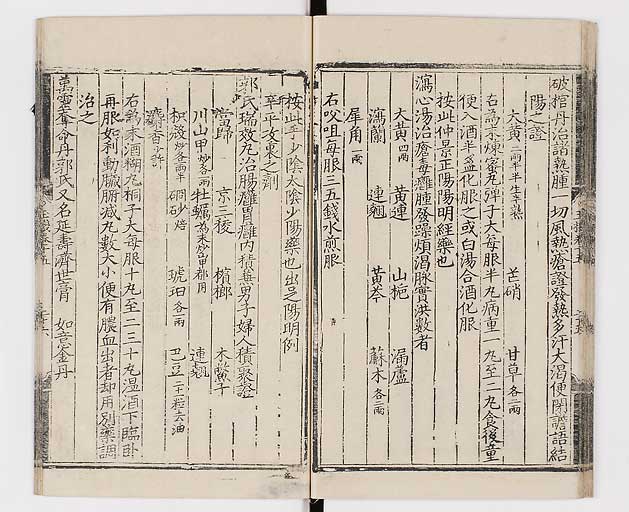 破棺丹治諸熱腫一切風熱瘡證發熱多汗大渴便閉譫語結
陽之證
大黃二兩半半生半熟 芒硝 甘草各二兩
右為末煉蜜丸彈子大每服半丸病重一丸至二丸食後童
便入酒半盞化服之或白湯合酒化服
按此仲景正陽陽明經藥也
瀉心湯治瘡毒癰腫發躁煩渴脉實洪數者
大黃四兩 黃連 山梔 漏蘆
瀉蘭 連翹 黃芩 蘇木各二兩
犀角一兩
右㕮咀每服三五錢水煎服
按此手少陰太陰少陽藥也出足陽明例
辛平攻東之劑
郭氏瑞效丸治腸癰胃癰內積兼男子婦人積聚證
當歸 京三稜 檳榔 木鱉子
川山甲炒各一兩 牡蠣為末炒山甲都用 連翹
枳殼炒各一兩半 硇砂焙 琥珀各一兩 巴豆二十一粒去油
麝香少許
右為末酒糊丸桐子大每服十丸至二三十丸溫酒下臨臥
再服如利動臟腑減丸數大小便有膿血出者却用別藥調
治之
萬靈奪命丹郭氏又名延壽濟世膏 如意金丹